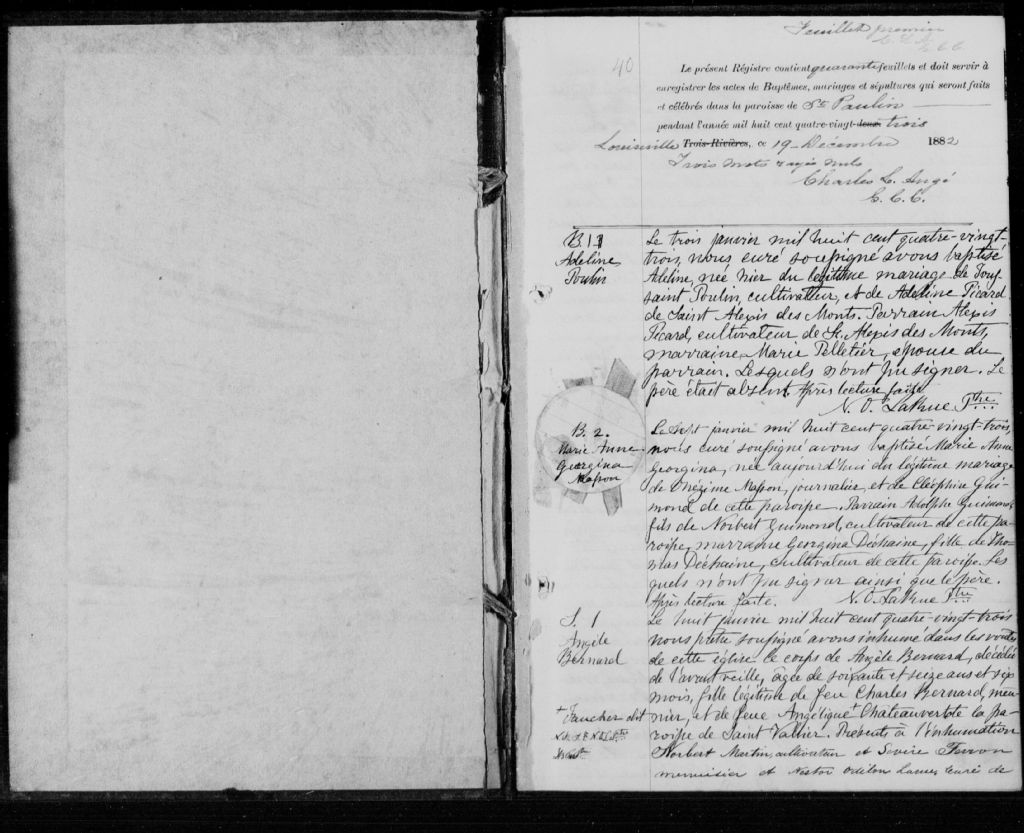 Feuillet premier
C. L. A.
C. C. C.
40
Le présent Régistre contient quarante feuillets et doit servir à
enregistrer les actes de Baptêmes, mariages et sépultures qui seront faits
et célébrés dans la paroisse de Ste Paulin
pendant l'année mil huit cent quatre-vingt-deux trois
Louiseville Trois-Rivières, ce 19 Décembre 1882
Trois mots rayés nuls
Charles L. Angé
C. C. C.
B 1
Adeline
Poulin
Le trois janvier mil huit cent quatre-vingt-
trois, nous curé soussigné avons baptisé
Adeline, née hier du légitime mariage de Tous-
saint Poulin, cultivateur, et de Adeline Picard
de Saint Alexis des Monts. Parrain Alexis
Picard, cultivateur de St. Alexis des Monts,
marraine Marie Pelletier, épouse du
parrain. Lesquels n'ont pu signer. Le
père était absent. Après lecture faite
N. O. LaRue Ptre
B. 2.
Marie Anne
Georgina
Masson
Le sept janvier mil huit cent quatre-vingt-trois,
nous curé soussigné avons baptisé Marie Anne
Georgina, née aujourd'hui du légitime mariage
de Onézime Masson, journalier, et de Cléophire Gui-
mond de cette paroisse. Parrain Adolphe Guimond,
fils de Norbert Guimond, cultivateur de cette pa-
roisse, marraine Georgina Déchaine, fille de Tho-
mas Déchaine, cultivateur de cette paroisse. Les
quels n'ont pu signer ainsi que le père.
Après lecture faite. N. O. LaRue Ptre
S. 1
Angèle
Bernard
Le huit janvier mil huit cent quatre-vingt-trois
nous prêtre soussigné avons inhumé dans les voutes
de cette église le corps de Angèle Bernard, décédée
de l'avant veille, âgée de soixante et seize ans et six
mois, fille légitime de feu Charles Bernard, meu-
nier, et de feue Angélique + Chateauvert de la pa-
roisse de Saint Vallier. Présents à l'inhumation
+ Faucher dit
Norbert Martin, cultivateur et Sévère Ferron
menuisier et Nestor Odilon Larue, curé de